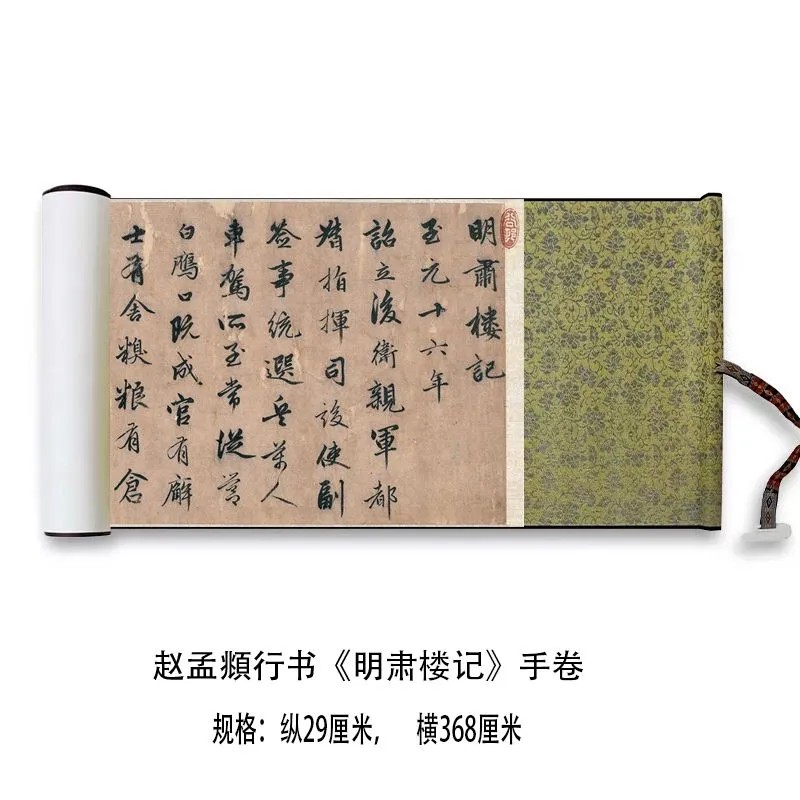 明肅樓記
至元十六年
詔立後衛親軍都
指揮司設使副
僉事統選兵萬人
車駕所至常從營
白鴈口既成官有廨
士有舍糗糧有倉
赵孟頫行书《明肃楼记》手卷
规格：纵29厘米， 横368厘米